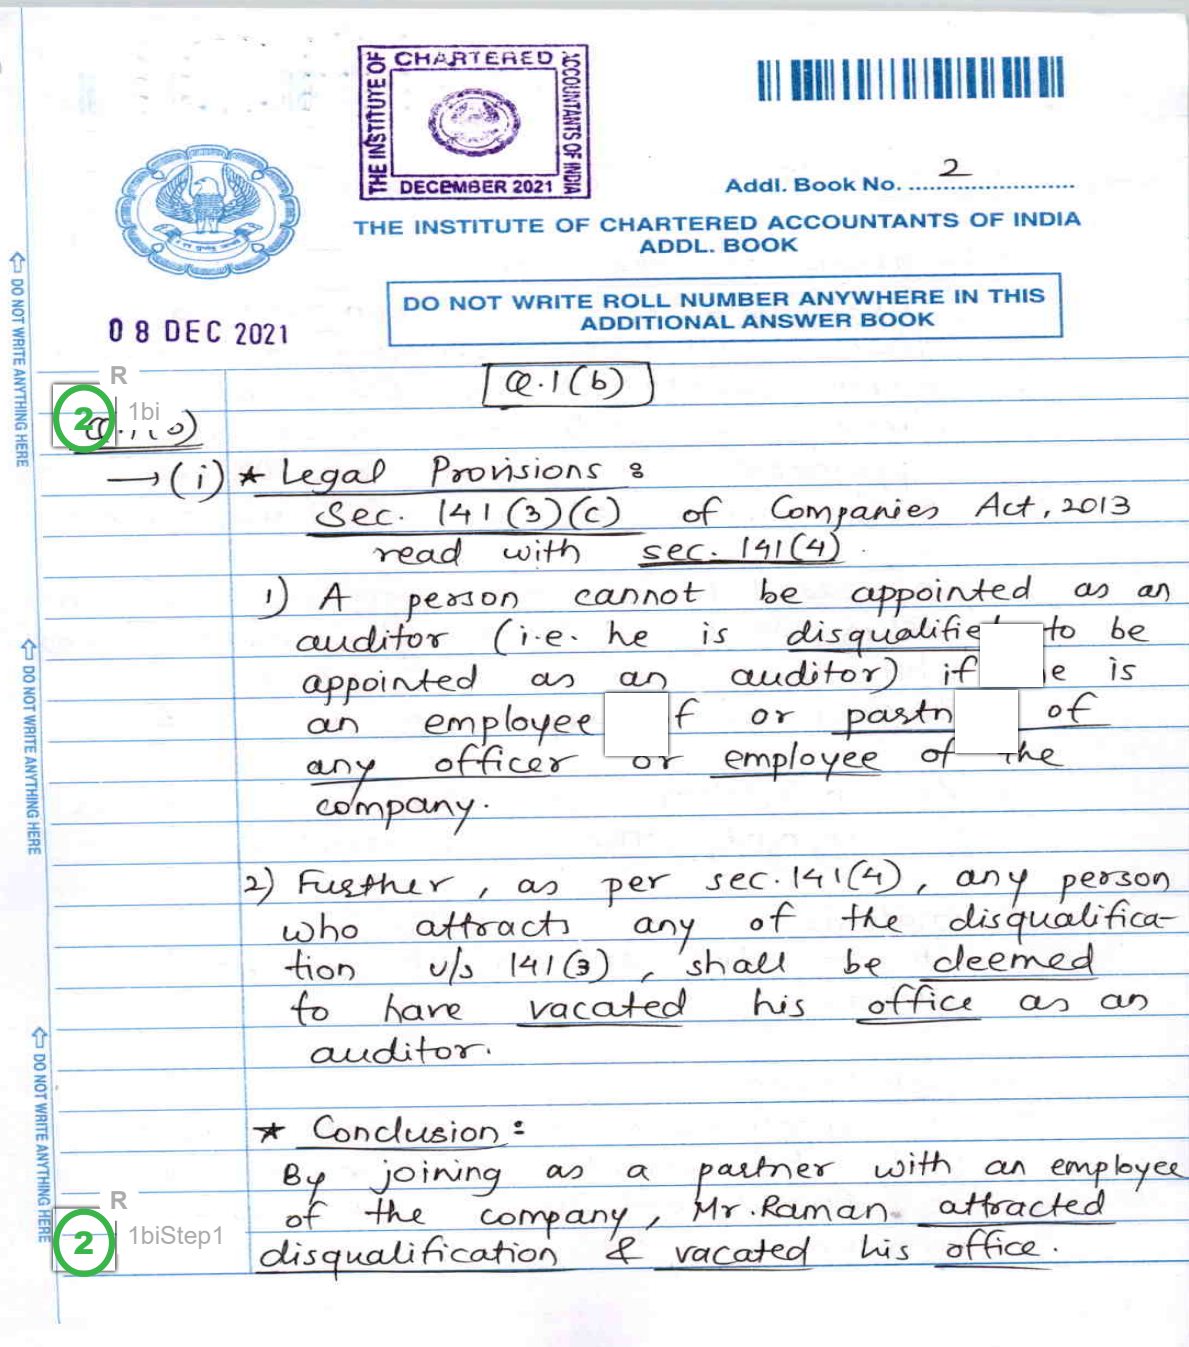 THE INSTITUTE OF CHARTERED ACCOUNTANTS OF INDIA
DECEMBER 2021
Addl. Book No. 2
THE INSTITUTE OF CHARTERED ACCOUNTANTS OF INDIA
ADDL. BOOK
DO NOT WRITE ROLL NUMBER ANYWHERE IN THIS
ADDITIONAL ANSWER BOOK
08 DEC 2021
DO NOT WRITE ANYTHING HERE
DO NOT WRITE ANYTHING HERE
DO NOT WRITE ANYTHING HERE
Q.1(b)
R
2 1bi
→ (i) * Legal Provisions :
Sec. 141(3)(c) of Companies Act, 2013
read with sec. 141(4).
1) A person cannot be appointed as an
auditor (i.e. he is to be
appointed as an auditor) if is
an employee or of
any officer or employee of the
company.
2) Further, as per sec. 141(4), any person
who attracts any of the disqualifica-
tion u/s 141(3), shall be deemed
to have vacated his office as an
auditor.
* Conclusion :
By joining as a partner with an employee
of the company, Mr. Raman attracted
disqualification & vacated his office.
R
2 1biStep1